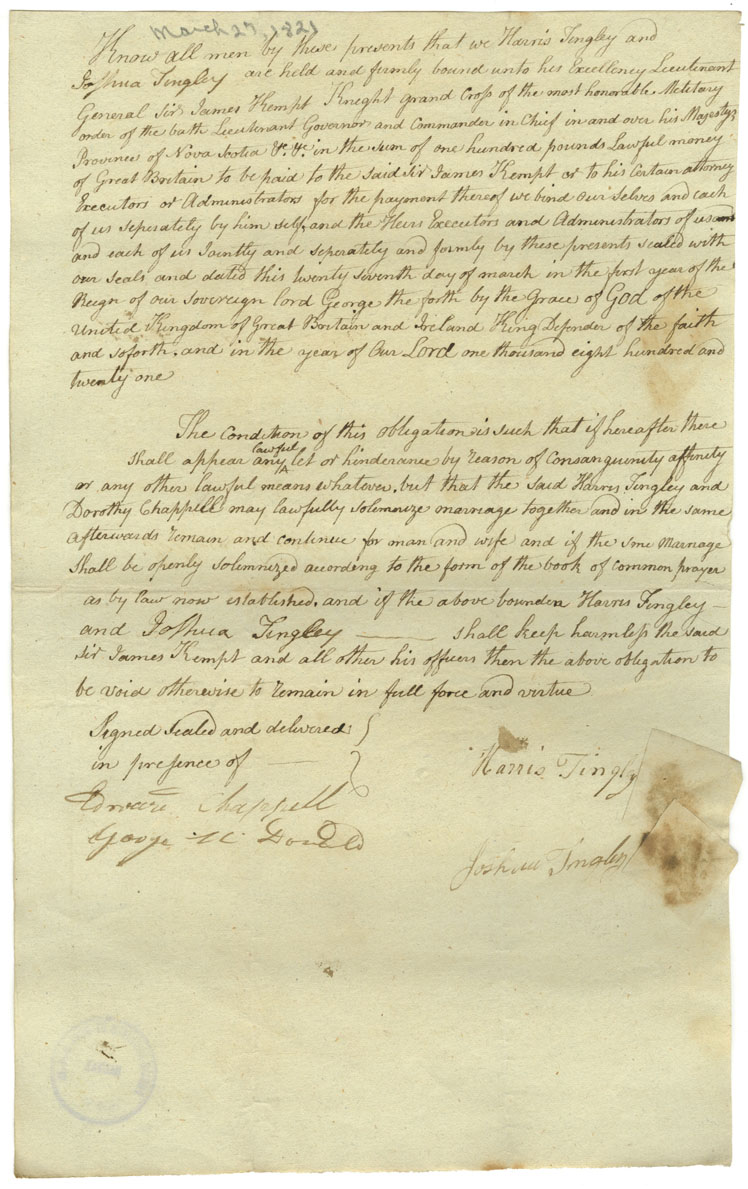 March 27, 1821
Know all men by these presents that we Harris Tingley and
Joshua Tingley are held and firmly bound unto his Excellency Lieutenant
General Sir James Kempt Knight grand Cross of the most honorable Military
order of the bath Lieutenant Governor and Commander in Chief in and over his Majestys
Province of Nova Scotia &c &c in the sum of one hundred pounds Lawful money
of Great Britain to be paid to the said Sir James Kempt or to his Certain attorney
Executors or Administrators for the payment thereof we bind Our Selves and each
of us seperately by him self, and the Heirs Executors and Administrators of us and
and each of us Jointly and seperately and formly by these presents sealed with
our seals and dated this twenty seventh day of march in the first year of the
Reign of our Sovereign lord George the forth by the Grace of God of the
United Kingdom of Great Britain and Ireland King Defender of the faith
and soforth, and in the year of Our Lord one thousand eight hundred and
twenty one
The Condition of this obligation is such that if hereafter there
shall appear any lawful let or hinderance by reason of Consanguinity affinity
or any other lawful means whatever, but that the said Harris Tingley and
Dorothy Chappell may lawfully solemnize marriage together and in the same
afterwards remain and continue for man and wife and if the sme Marriage
shall be openly solemnized according to the form of the book of Common prayer
as by law now established, and if the above bounden Harris Tingley —
and Joshua Tingley —— shall keep harmless the said
Sir James Kempt and all other his officers then the above obligation to
be void otherwise to remain in full force and virtue
Signed sealed and delivered
in presence of —
Harris Tingley
Edward Chappell
George Mc Donald
Joshua Tingley